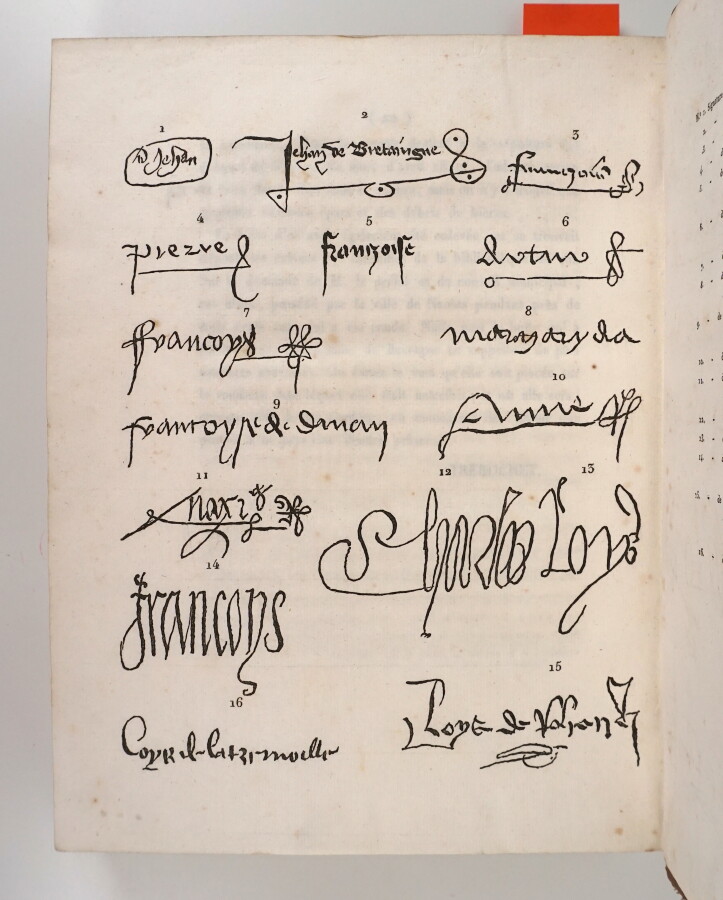 1
Jehan
2
Jehan de Bretaingne
3
Françoys
4
pierre
5
françoise
6
Artur
7
françoys
8
margarida
9
françoyse de dinan
10
Anne
11
12 13
Charles Loys
14
francoys
15
Loys de Rohen
16
Loys de latremoille